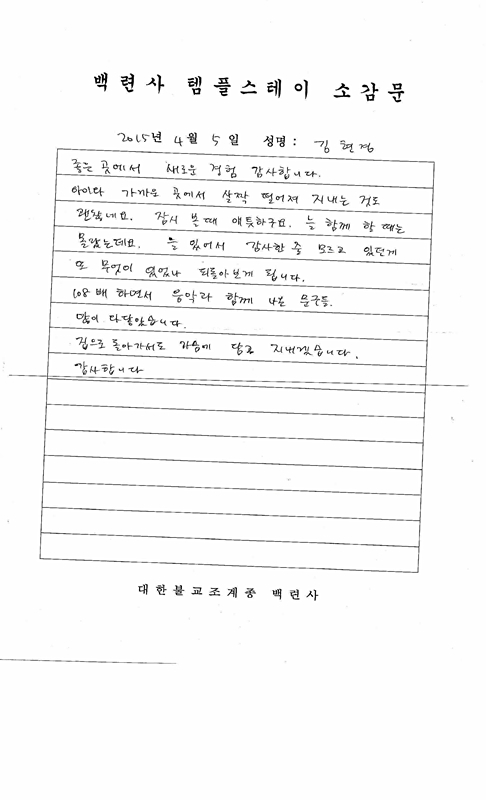 백련사 템플스테이 소감문
2015년 4월 5일 성명 : 김현경
좋은 곳에서 새로운 경험 감사합니다.
아이와 가까운 곳에서 살짝 떨어져 지내는 것도
괜찮네요. 잠시 볼 때 애틋하구요. 늘 함께 할 때는
몰랐는데요. 늘 있어서 감사한 줄 모르고 있던게
또 무엇이 있었나 되돌아보게 됩니다.
108배 하면서 음악과 함께 나온 문구들.
많이 다달았습니다.
집으로 돌아가서도 마음에 담고 지내겠습니다.
감사합니다
대한불교조계종 백련사